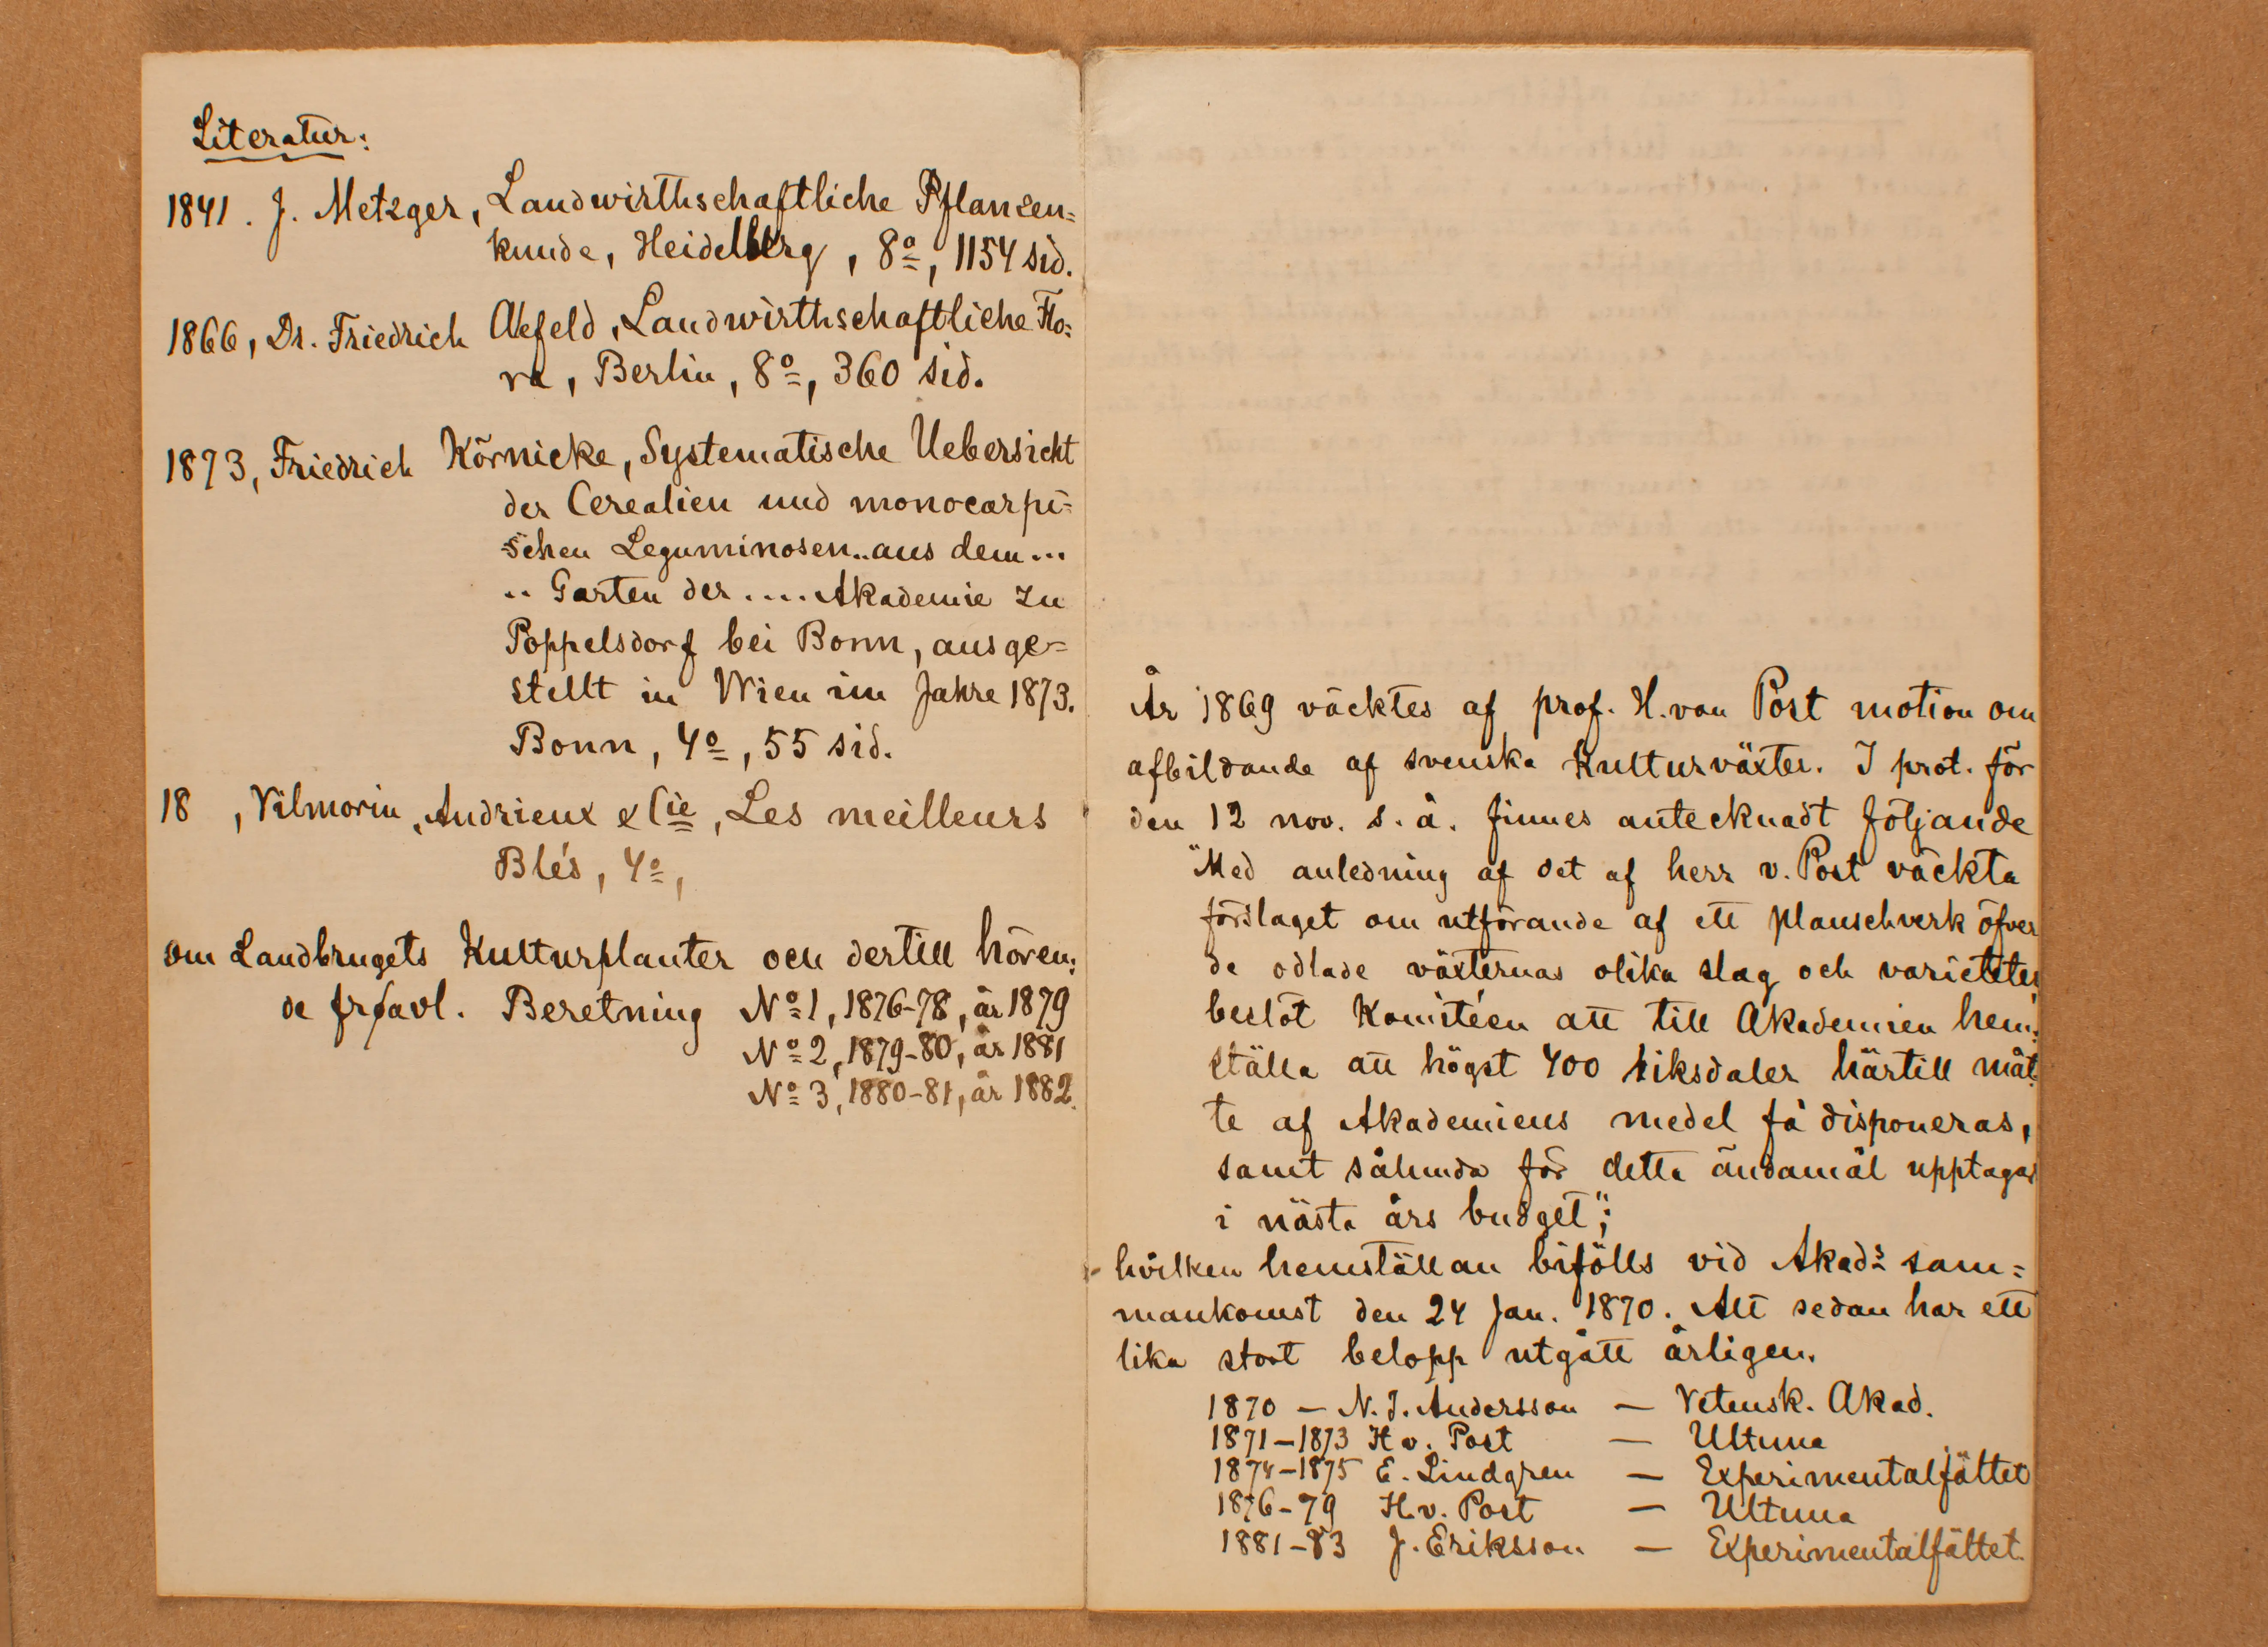 Literatur:
1841. J. Metzger, Landwirthschaftliche Pflanzen=
kunde, Heidelberg, 8º, 1154 sid.
1866, Dr. Friedrich Alefeld, Landwirthschaftliche Flo=
ra, Berlin, 8º, 360 sid.
1873, Friedrich Körnicke, Systematische Uebersicht
der Cerealien und monocarpi=
schen Leguminosen.. aus dem ...
.. Garten der .... Akademie zu
Poppelsdorf bei Bonn, ausge=
stellt in Wien im Jahre 1873.
Bonn, 4º, 55 sid.
18 , Vilmorin, Andrieux & Cie, Les meilleurs
Blés, 4º,
om Landbrugets Kulturplanter och dertill hören=
de frøavl. Beretning Nº 1, 1876-78, år 1879
Nº 2, 1879-80, år 1881
Nº 3, 1880-81, år 1882.
År 1869 väcktes af prof. H. von Post motion om
afbildande af svenska Kulturväxter. I prot. för
den 12 nov. s. å. finnes antecknadt följande
"Med anledning af det af herr v. Post väckta
förslaget om utförande af ett planschverk öfver
de odlade växternas olika slag och varieteter,
beslöt Komitéen att till Akademien hem=
ställa att högst 400 riksdaler härtill måt=
te af Akademiens medel få disponeras,
samt sålunda för detta ändamål upptagas
i nästa års budget";
- hvilken hemställan bifölls vid Akad:s sam=
mankomst den 24 Jan. 1870. Allt sedan har ett
lika stort belopp utgått årligen.
1870 — N. J. Andersson — Vetensk. Akad.
1871—1873 H v. Post — Ultuna
1874—1875 E. Lindgren — Experimentalfältet
1876-79 H. v. Post — Ultuna
1881-83 J. Eriksson — Experimentalfältet.